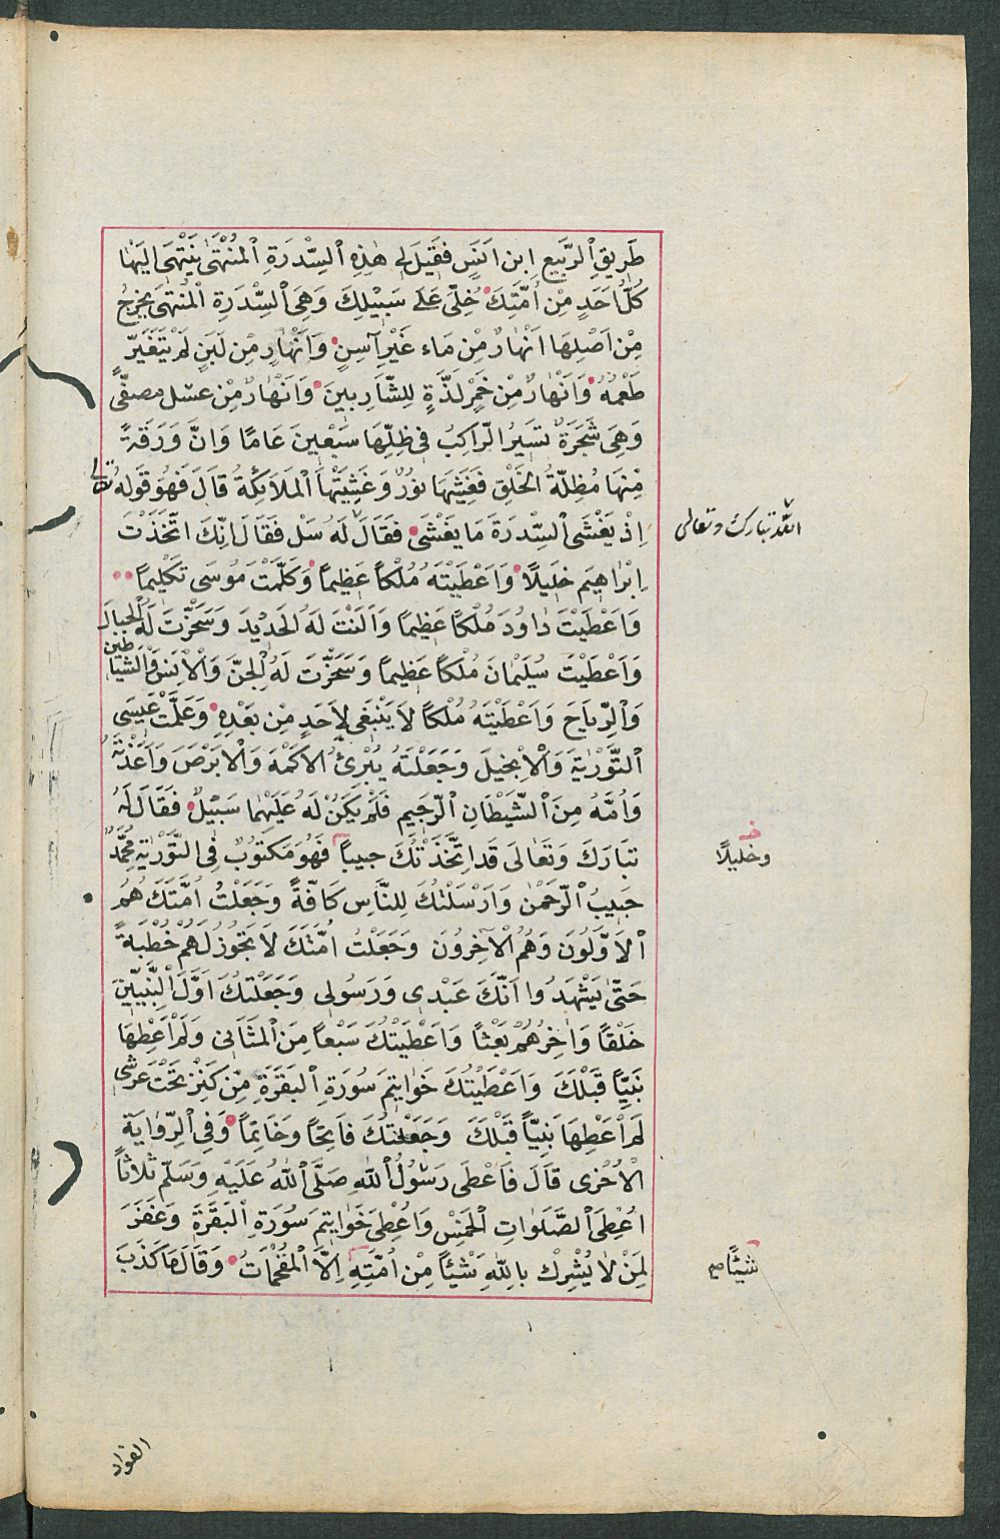 طَرِيقِ ٱلرَّبِيعِ ابْنِ اَنَسٍ فَقِيلَ لِى هٰذِهِ ٱلسِّدْرَةِ ٱلْمُنْتَهَى يَنْتَهِى اِلَيْهَا
كُلُّ اَحَدٍ مِنْ اُمَّتِكَ خُلِّىَ عَلَى سَبِيْلِكَ وَهِىَ ٱلسِّدْرَةِ ٱلْمُنْتَهَى يَخْرُجُ
مِنْ اَصْلِهَا اَنْهَارٌ مِنْ مَاء غَيْرِ آسِنٍ وَاَنْهَارٌ مِنْ لَبَنٍ لَمْ يَتَغَيَّرْ
طَعْمُهُ وَاَنْهَارٌ مِنْ خَمْرٍ لَذَّةٍ لِلشَّارِبِينَ وَاَنْهَارٌ مِنْ عَسَلٍ مُصَفًّى
وَهِىَ شَجَرَةٌ يَسِيْرُ الرَّاكِبُ فِى ظِلِّهَا سَبْعِينَ عَامًا وَاِنَّ وَرَقَةً
مِنْهَا مُظِلَّةُ الخَلْقِ فَغَشِيَهَا نُورٌ وَغَشِيَتْهَا ٱلْمَلَائِكَةُ قَالَ فَهُوَ قَوْلُهُ تعالى
اِذْ يَغْشَى ٱلسِّدْرَةَ مَا يَغْشَى فَقَالَ لَهُ سَلْ فَقَالَ اِنَّكَ اتَّخَذْتَ
الله تبارك وتعالى
اِبْرَاهِيمَ خَلِيلًا وَاَعْطَيْتَهُ مُلْكاً عَظِيمًا وَكَلَّمْتَ مُوسَى تَكْلِيمًا
وَاَعْطَيْتَ دَاوُدَ مُلْكاً عَظِيمًا وَاَلَنْتَ لَهُ الحَدِيْدَ وَسَخَّرْتَ لَهُ ٱلْجِبَالَ
وَاَعْطَيْتَ سُلَيْمَانَ مُلْكاً عَظِيمًا وَسَخَّرْتَ لَهُ ٱلْجِنَّ وَٱلْاِنْسَ وَٱلشَّيَاطِين
وَٱلرِّيَاحَ وَاَعْطَيْتَهُ مُلْكاً لاَ يَنْبَغِى لِاَحَدٍ مِنْ بَعْدِهِ وَعَلَّمْتَ عِيسَى
ٱلتَّوْرٰيةَ وَٱلْاِنْجِيلَ وَجَعَلْتَهُ يُبْرِئُ الاَكْمَهَ وَالْاَبْرَصَ وَاَعَذْتَهُ
وَاُمَّهُ مِنَ ٱلشَّيْطَانِ ٱلرَّجِيمِ فَلَمْ يَكُنْ لَهُ عَلَيْهِمَا سَبِيْلٌ فَقَالَ لَهُ
تَبَارَكَ وَتَعَالَى قَدِ اتَّخَذْتُكَ حبيباً فَهُوَ مَكْتُوبٌ فِى ٱلتَّوْرٰيةِ مُحَمَّدٌ
خـ
وخليلًا
حَبِيبُ ٱلرَّحْمٰنِ وَاَرْسَلْتُكَ لِلنَّاسِ كَافَّةً وَجَعَلْتُ اُمَّتَكَ هُمُ
ٱلاَوَّلُونَ وَهُمُ ٱلْآخِرُونَ وَجَعَلْتُ اُمَّتَكَ لَا تَجُوزُ لَهُمْ خُطْبَةٌ
حَتَّى يَشْهَدُوا اَنَّكَ عَبْدِى وَرَسُولِى وَجَعَلْتُكَ اَوَّلَ ٱلنَّبِيِّينَ
خَلْقًا وَاٰخِرُهُمْ بَعْثًا وَاَعْطَيْتُكَ سَبْعاً مِنَ ٱلْمَثَانِى وَلَمْ اُعْطِهَا
نَبِيًّا قَبْلَكَ وَاَعْطَيْتُكَ خَوَاتِيمَ سُورَةِ ٱلْبَقَرَةِ مِنْ كَنْزٍ تَحْتَ عَرْشِى
لَمْ اُعْطِهَا نَبِيًّا قَبْلَكَ وَجَعَلْتُكَ فَاتِحًا وَخَاتِمًا وَفِى ٱلرِّوَايَةِ
الْاُخْرٰى قَالَ فَاُعْطِىَ رَسُولُ ٱللهِ صَلَّى ٱللهُ عَلَيْهِ وَسَلَّمَ ثَلَاثًا
اُعْطِىَ ٱلصَّلَوَاتِ ٱلْخَمْسِ وَاُعْطِىَ خَوَاتِيمَ سُورَةِ ٱلْبَقَرَةِ وَغَفَرَ
لِمَنْ لَا يُشْرِكْ بِاللهِ شَيْئًا مِنْ اُمَّتِهِ اِلَّا ٱلْمُقْحِمَاتُ وَقَالَ مَا كَذَبَ
شيئًا صح
الفواد